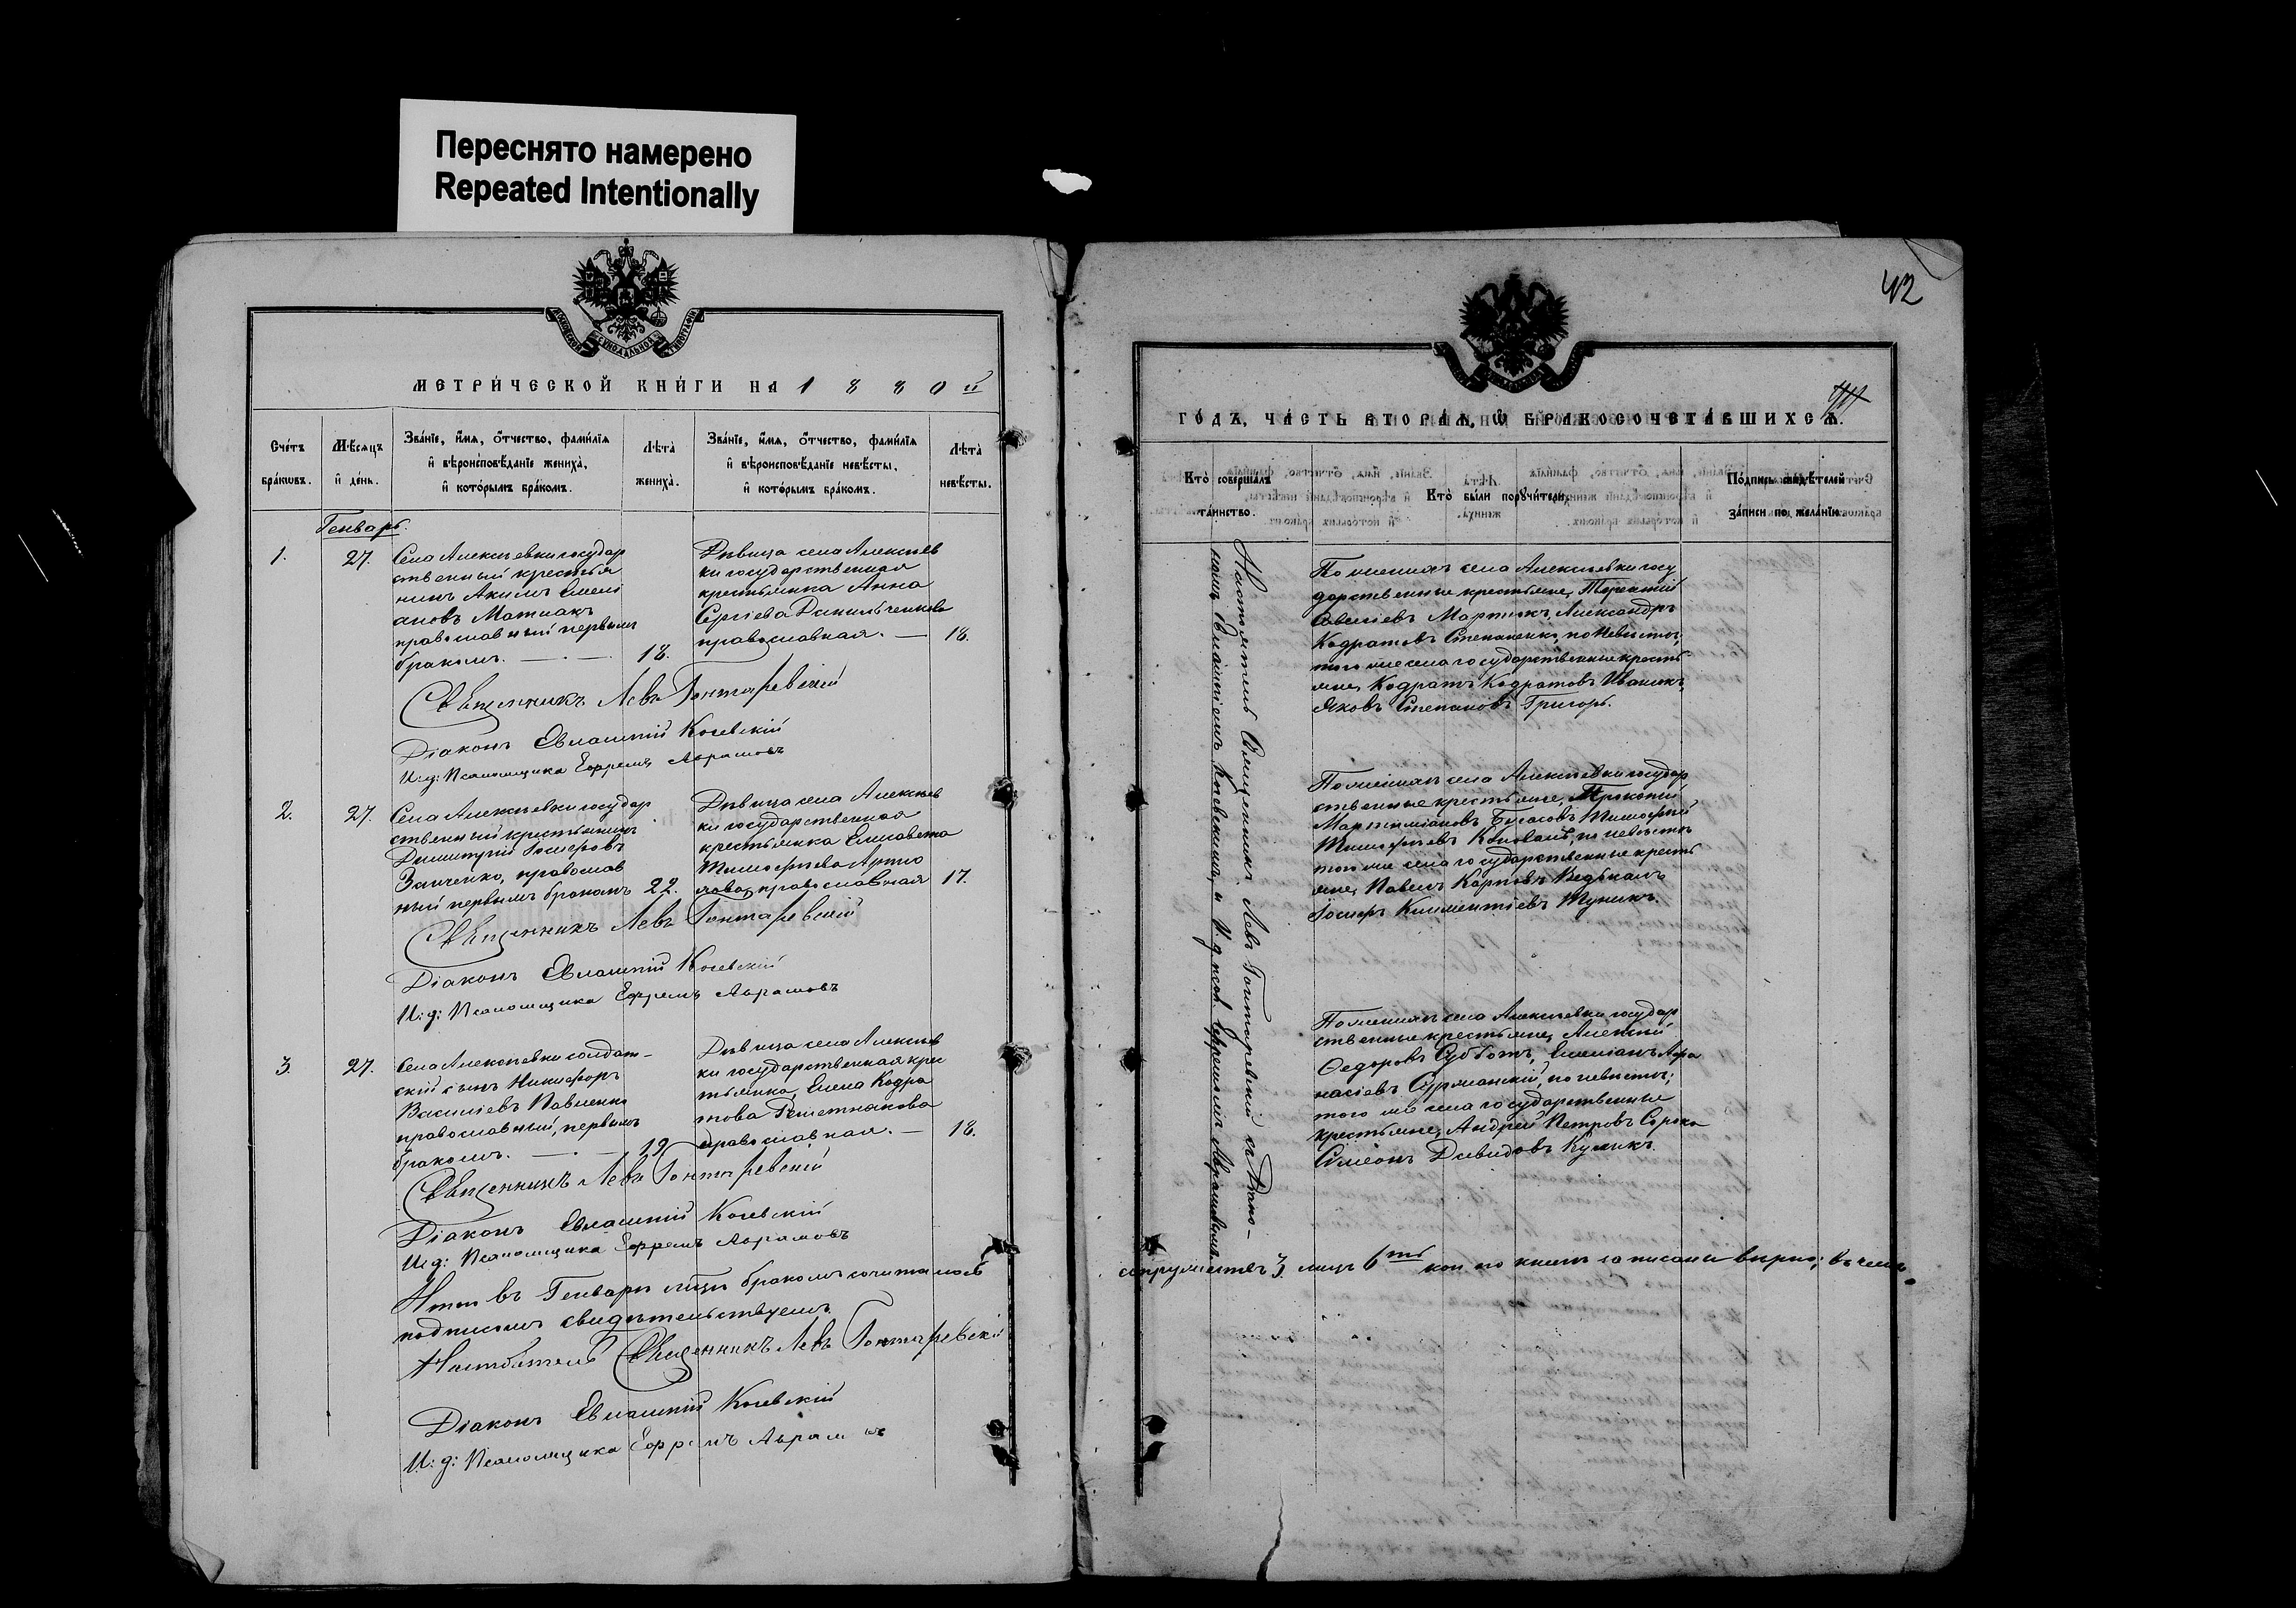 Переснято намерено
Repeated Intentionally
МЕТРИ́ЧЕСКОЙ КНИ́ГИ НА 1880й
Сче́тъ бра́кωвъ.
Мѣ́сяцъ и҆ де́нь.
Зва́нїе, и҆́мѧ, ѻ҆́тчество, фами́лїѧ
и҆ вѣроисповѣ́данїе жениха̀,
и҆ кото́рымъ бра́комъ.
Лѣта̀ жениха̀.
Зва́нїе, и҆́мѧ, ѻ҆́тчество, фами́лїѧ
и҆ вѣроисповѣ́данїе невѣ́сты,
и҆ кото́рымъ бра́комъ.
Лѣта̀ невѣ́сты.
Генварь.
1.
27.
Села Алексѣевки государ
ственный крестья
нинъ Акимъ Емелі
ановъ
православный первымъ
бракомъ. — . —
18.
Дѣвица села Алексѣев
ки государственная
крестьянка Анна
Сергіева Данильченкова
православная. —
18.
Священникъ Левъ Гонтаревскій
Діаконъ Евлампій Косевскій
И: д: Псаломщика Ефремъ Аврамовъ
2.
27.
Села Алексѣевки государ
ственный крестьянинъ
Димитрій Іосифовъ
Заиченко, православ
ный первымъ бракомъ
22.
Дѣвица села Алексѣев
ки государственная
крестьянка Елисавета
Тимофѣева
православная
17.
Священникъ Левъ Гонтаревскій
Діаконъ Евлампій Косевскій
И: д: Псаломщика Ефремъ Аврамовъ
3.
27.
Села Алексѣевки солдат-
скій сынъ Никифоръ
Василіевъ Павленко
православный, первымъ
бракомъ. — . —
19
Дѣвица села Алексѣев
ки государственная крес
тьянка, Елена Кодра
това Решетнякова
православная. —
18.
Священникъ Левъ Гонтаревскій
Діаконъ Евлампій Косевскій
И: д: Псаломщика Ефремъ Аврамовъ
Итого въ Генварѣ м̃цѣ бракомъ сочиталось
подписомъ свидѣтельствуемъ
Настоятель Священникъ Левъ Гонтаревскій
Діаконъ Евлампій Косевскій
И: д: Псаломщика Ефремъ Аврамовъ
42
ГО́ДЪ, ЧА́СТЬ ВТОРА́Ѧ, Ѡ҆ БРАКОСОЧЕТА́ВШИХСѦ.
Кто̀ соверша́лъ та́инство.
Кто̀ бы́ли порꙋчи́тели.
По́дпись свидѣ́телей за́писи по жела́нїю.
Настоятель Священникъ Левъ Гонтаревскій съ Діако-
номъ Евлампіемъ Косевскимъ, и И. д. псал. Ефремомъ Аврамовымъ.
По женихѣ села Алексѣевки госу
дарственные крестьяне, Терентій
Савеліевъ Мартюкъ, Александръ
Кодратовъ Степаненко, по невѣстѣ;
того же села государственные кресть
яне, Кодратъ Кодратовъ Иванюкъ,
Яковъ Степановъ Григорь.
По женихѣ села Алексѣевки государ
ственные крестьяне, Прокопій
Тимофей
Тимофѣевъ по невѣстѣ
того же села государственные кресть
яне, Павелъ Карповъ
Іосифъ Климентіевъ
По женихѣ села Алексѣевки государ
ственные крестьяне, Алексій
Ѳедоровъ Субботъ, Емеліанъ Афа
насіевъ по невѣстѣ;
того же села государственные
крестьяне, Андрей Петровъ Сорока
Симеонъ Давидовъ Куликъ.
супружествъ 3. лицъ 6ть кои по книгѣ записаны вѣрно; въ чемъ